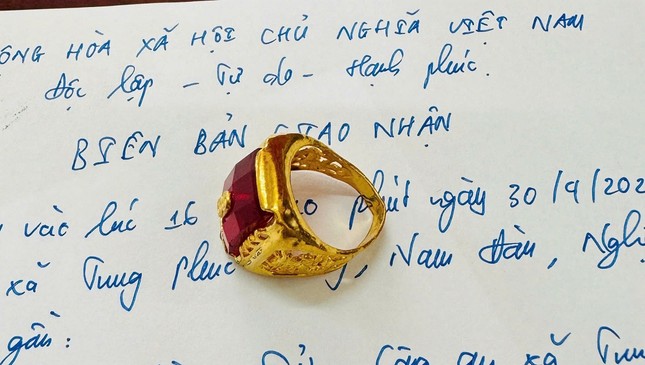 HÒA XÃ HỘI CHỦ NGHĨA VIỆT NAM
Độc lập - Tự do - Hạnh phúc.
BIÊN BẢN GIAO NHẬN
vào lúc 16 phút ngày 30/9/202
xã Trung Phúc Nam Đàn, Nghệ
gồm:
Công an xã